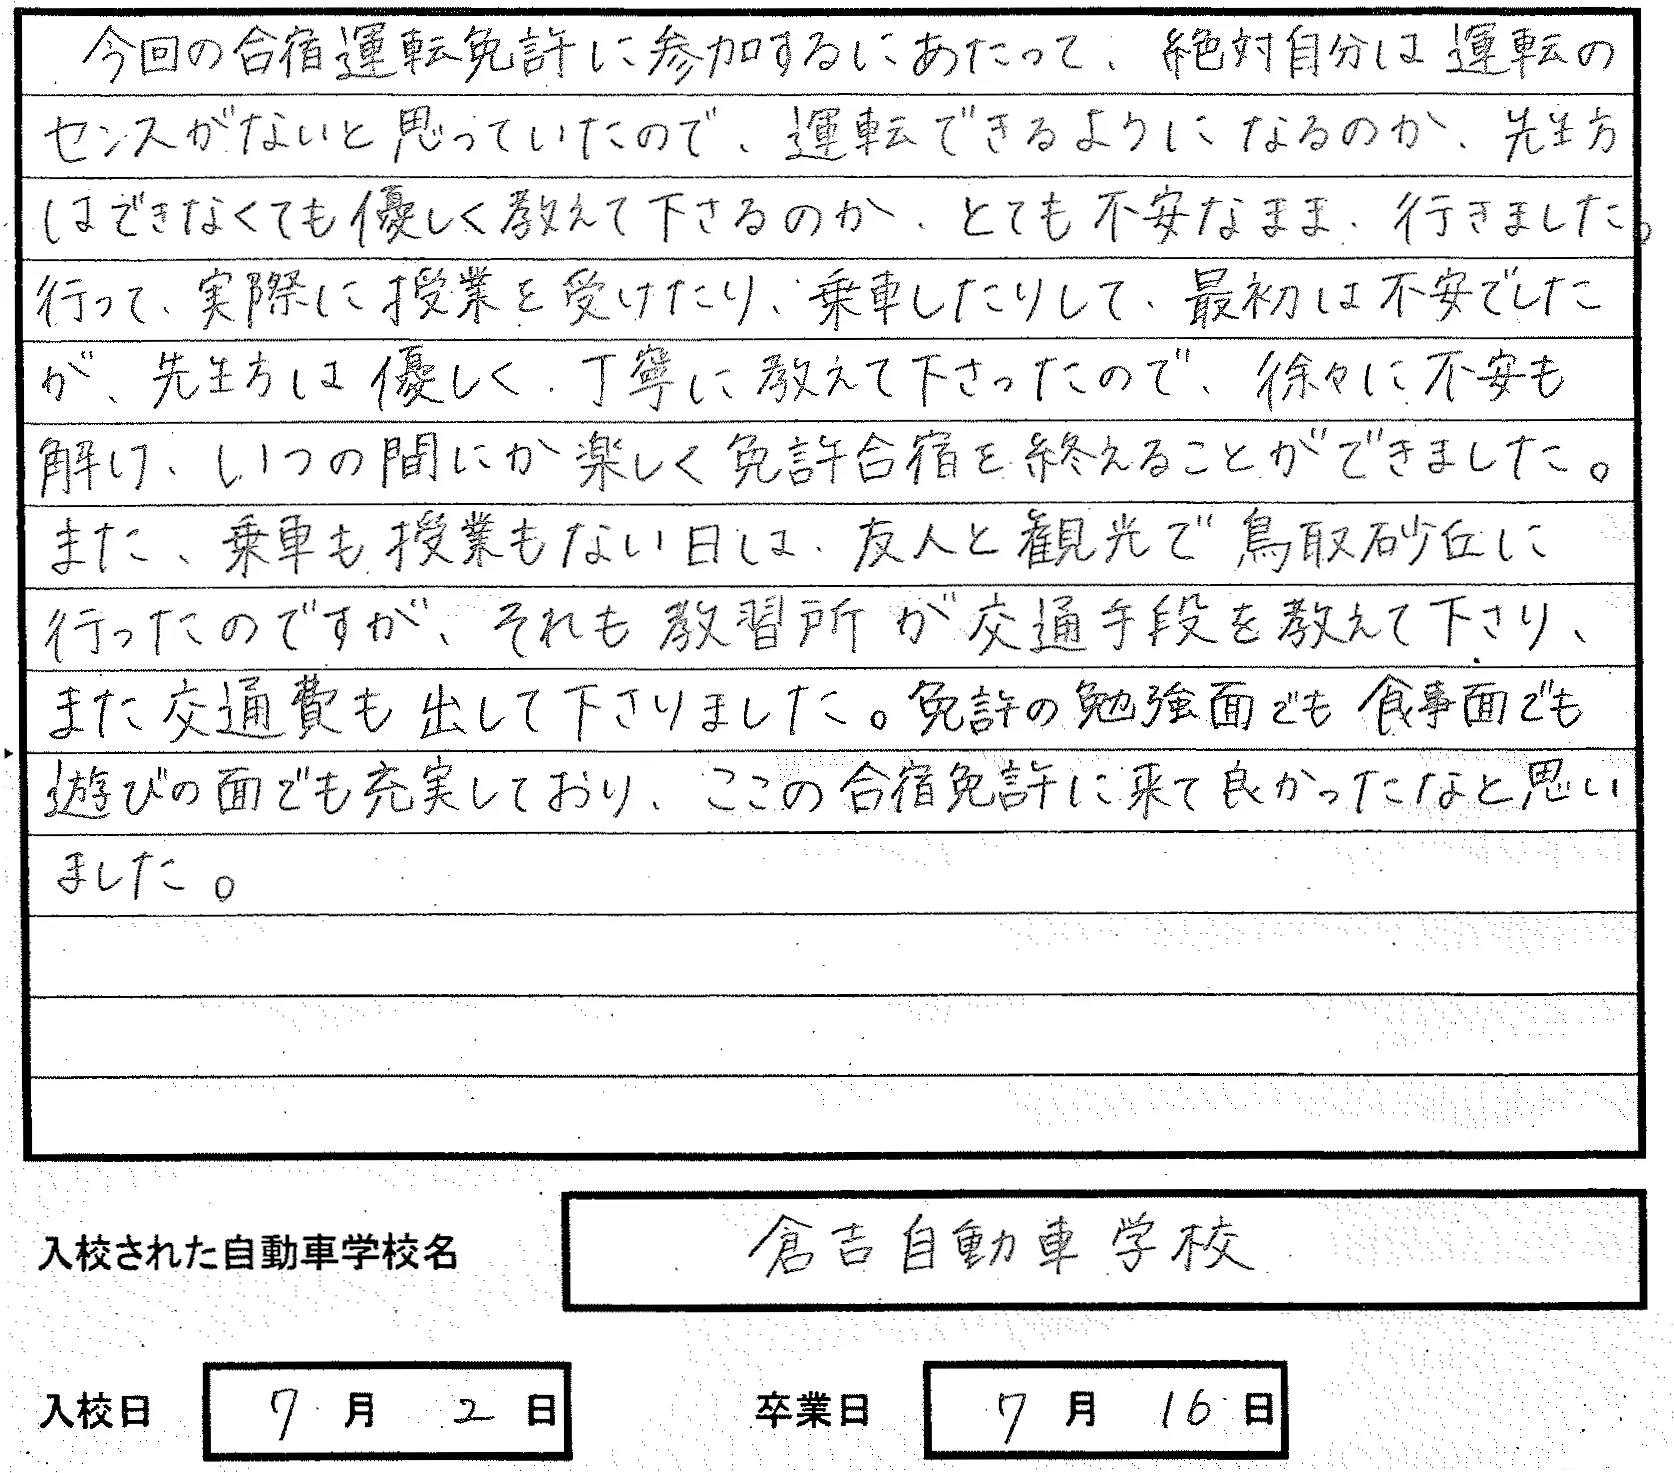 今回の合宿運転免許に参加するにあたって、絶対自分は運転の
センスがないと思っていたので、運転できるようになるのか、先生方
はできなくても優しく教えて下さるのか、とても不安なまま、行きました。
行って、実際に授業を受けたり、乗車したりして、最初は不安でした
が、先生方は優しく、丁寧に教えて下さったので、徐々に不安も
解け、いつの間にか楽しく免許合宿を終えることができました。
また、乗車も授業もない日は、友人と観光で鳥取砂丘に
行ったのですが、それも教習所が交通手段を教えて下さり、
また交通費も出して下さりました。免許の勉強面でも食事面でも
遊びの面でも充実しており、ここの合宿免許に来て良かったなと思い
ました。
入校された自動車学校名 倉吉自動車学校
入校日 7月2日 卒業日 7月16日